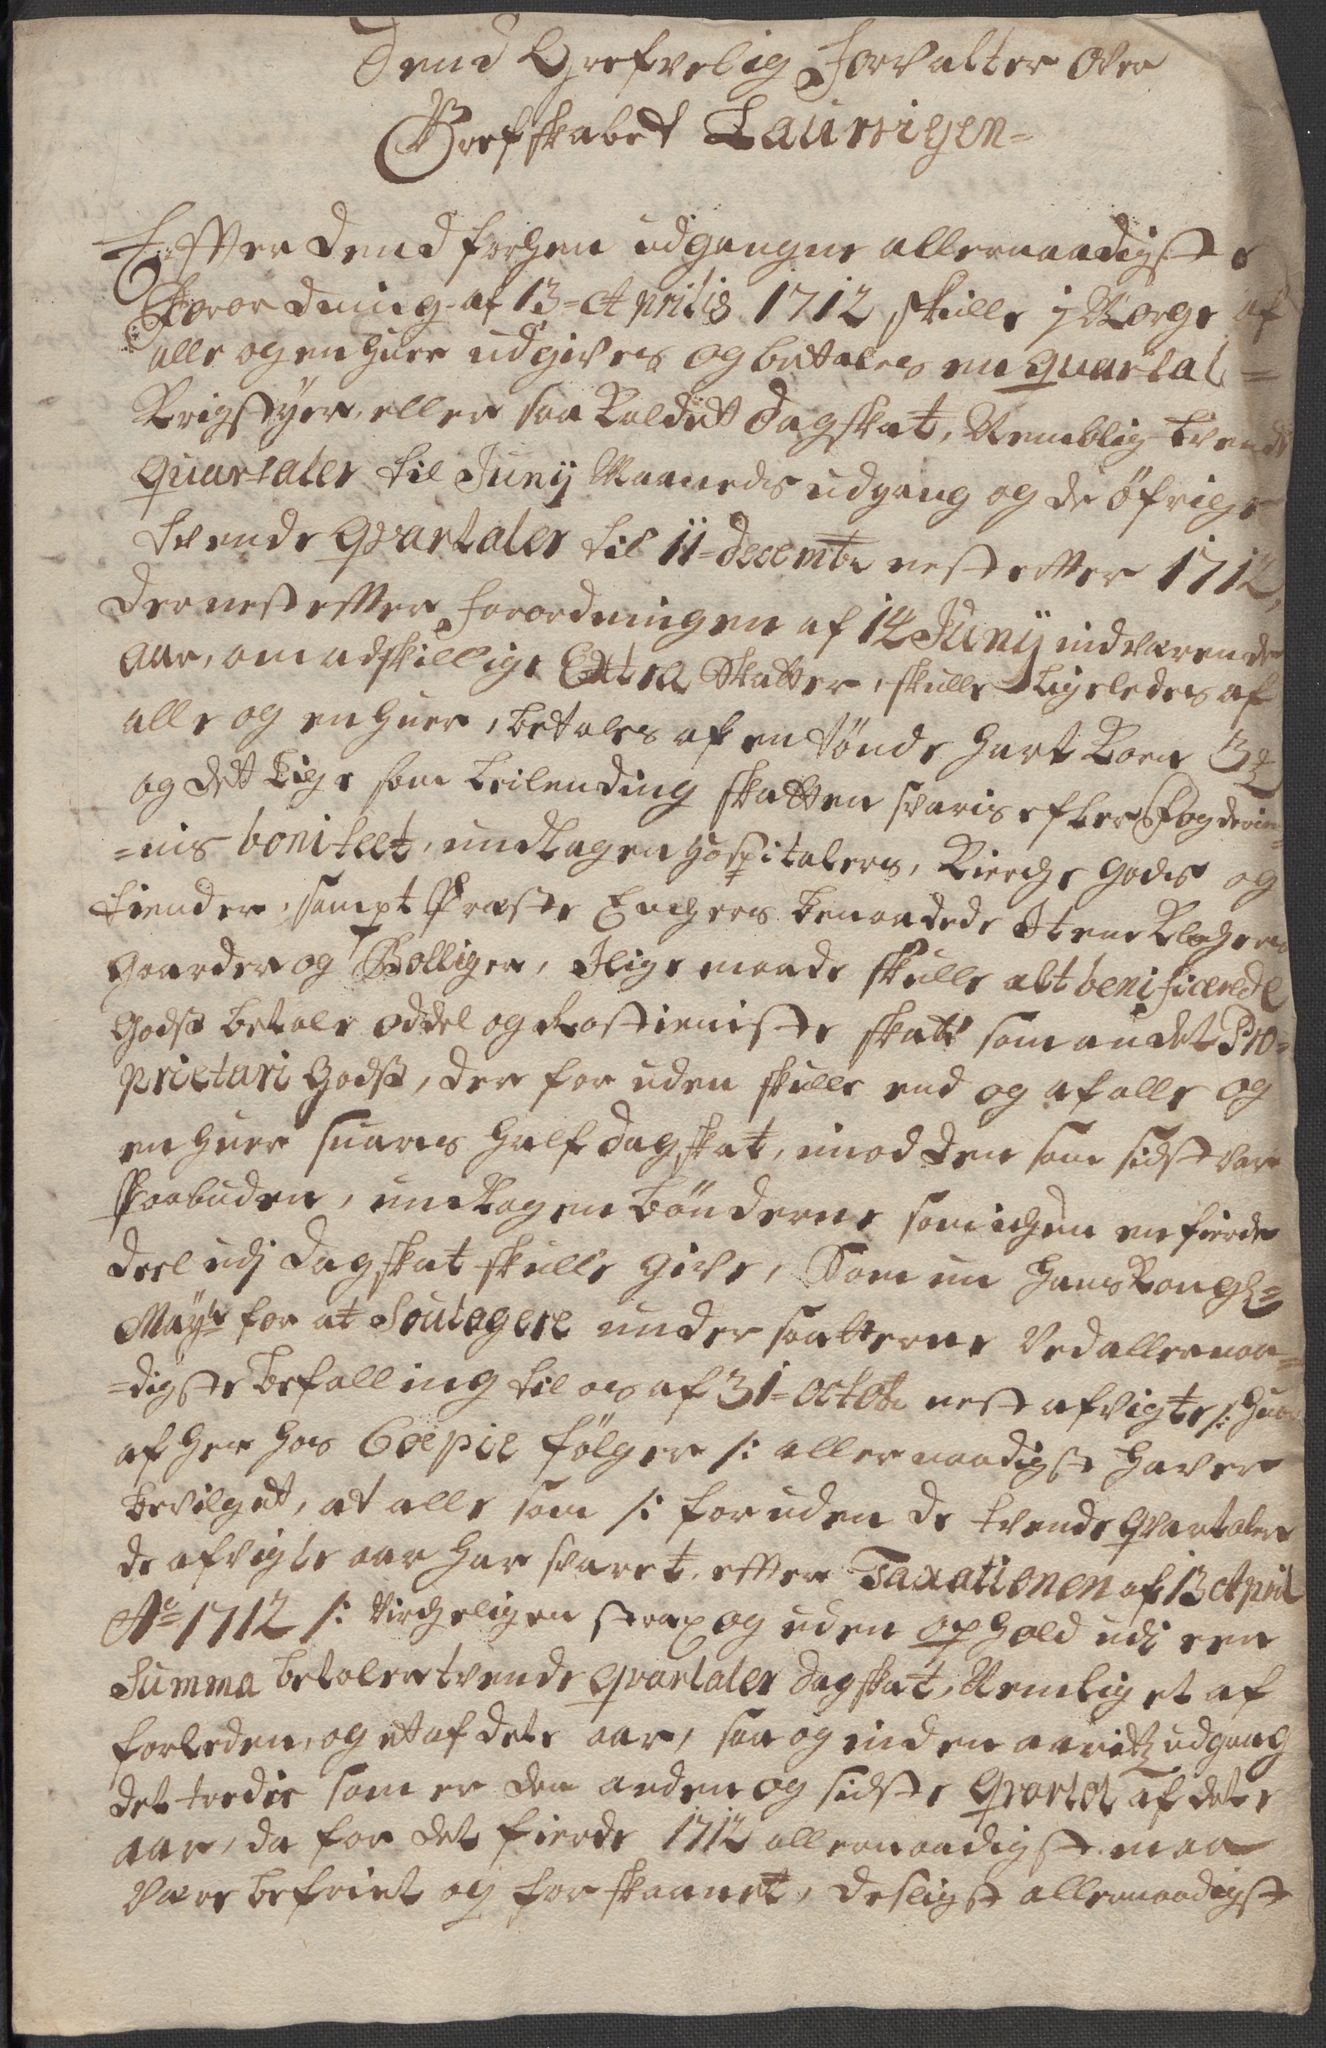 Dend Grefvelig Forvalter over
Grefskabet Laurvigen=
Effter dend forhen udgangne allernaadigste
Forordning af 13=Aprilis 1712 skulle j Norge af
alle og en huer udgives og betales en quartal=
Krigstyr, eller saa kaldet dagskat, Nemblig tvende
quartaler til Junij Maaneds udgang og de öfrige
tvende Qvartaler til 11=decembr nest effter 1712,
dernest effter Forordningen af 14 Junij indværende
aar, om adskillige Extra Skatter, skulle ligeledes af
alle og en huer, betales af en tönde hart Korn 3
og det lige som leilending skatten svaris efter Fogderier=
=nis boniteet, undtagen Hospitalers, Kierche gods og
tiender, sampt Præste Enchers benaadede Klocheres
gaarder og Bolliger, Ilige maade skulle alt benificerede
gods betale oddel og Rostieniste skatt som andet Pro=
prietari gods, der for uden skulle end og af alle og
en huer suares half dagskat, imod den som sidst var
paabuden, undtagen bönderne som ichun en fierde
deel udj dagskat skulle give, Som nu hans Kongl=
Mayts for at Soulagere undersaatterne ved allernaa=
=digste befalling til os af 31=octobr nest afvigte /: huor
af her hos Copie fölger /: allernaadigst haver
bevilget, at alle som /: foruden de tvende Qvartaler
de afvigte aar har svaret effter Taxationen af 13 April
Ao 1712 /: virchelig en strax og uden ophold udj een
Summa betaler tvende qvartaler dagskat, Nemlig et af
forleden, og et af dete aar, saa og inden aaritz udgang
det tredie som er den anden og sidste Qvartal af dete
aar, da for det fierde 1712 allernaadigst maa
være befriet og forskaanet, desligst allernaadigst